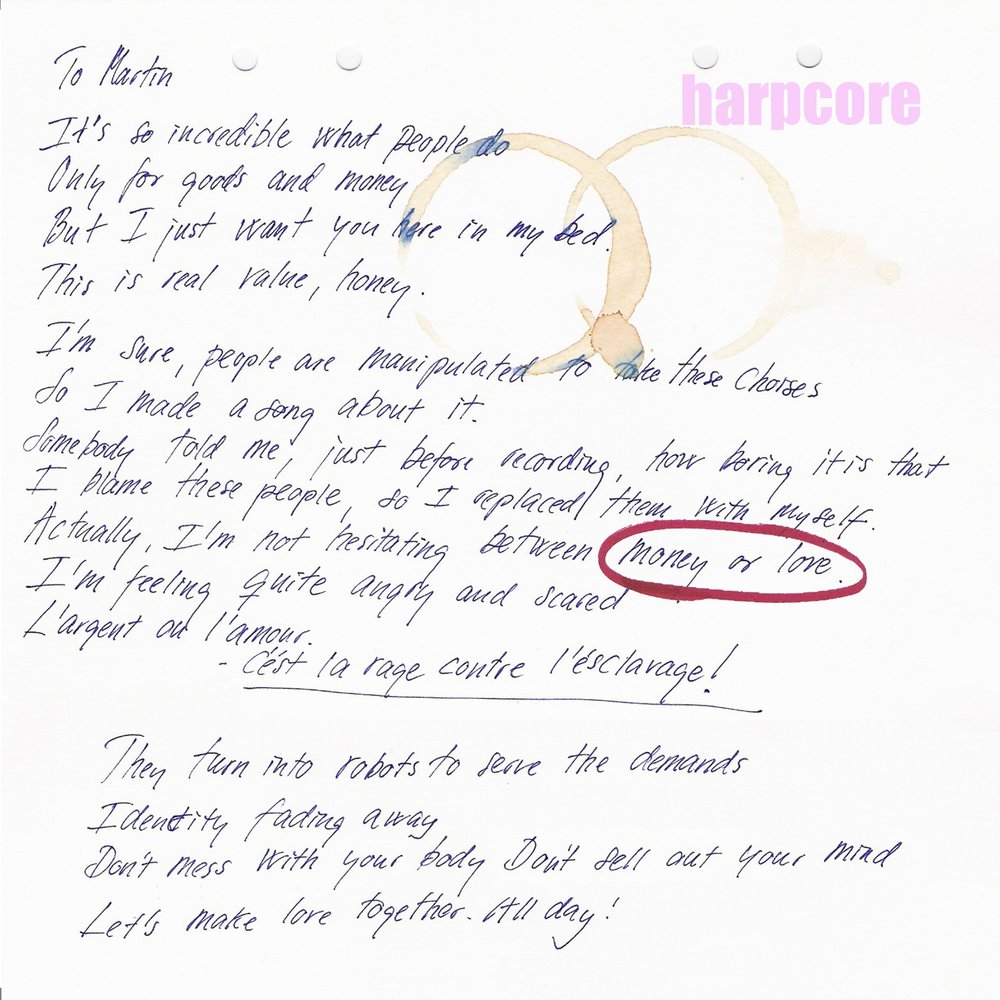 To Martin
harpcore
It's so incredible what people do
Only for goods and money
But I just want you here in my bed.
This is real value, honey.
I'm sure, people are manipulated to take these Choises
So I made a song about it.
Somebody told me, just before recording, how boring it is that
I blame these people, so I replaced them with myself.
Actually, I'm not hesitating between money or love.
I'm feeling quite angry and scared
L'argent ou l'amour.
- C'ést la rage contre l'ésclavage!
They turn into robots to serve the demands
Identity fading away
Don't mess with your body Don't sell out your mind
Let's make love together. All day!